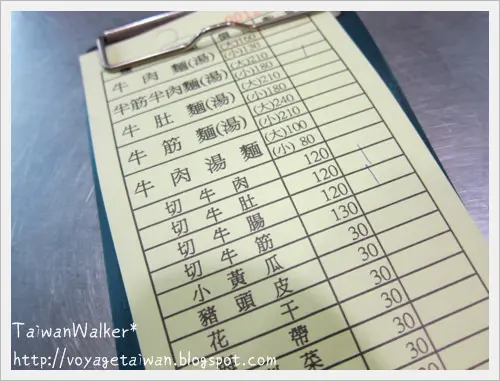 牛肉麵(湯) (大)160 (小)130
半筋半肉麵(湯) (大)210 (小)180
牛肚麵(湯) (大)210 (小)180
牛筋麵(湯) (大)240 (小)210
牛肉湯麵 (大)100 (小)80
切牛肉 120
切牛肚 120
切牛腸 120
切牛筋 130
小黃瓜 30
豬頭皮 30
花干 30
帶 30
菜 30
TaiwanWalker*
http://voyagetaiwan.blogspot.com/